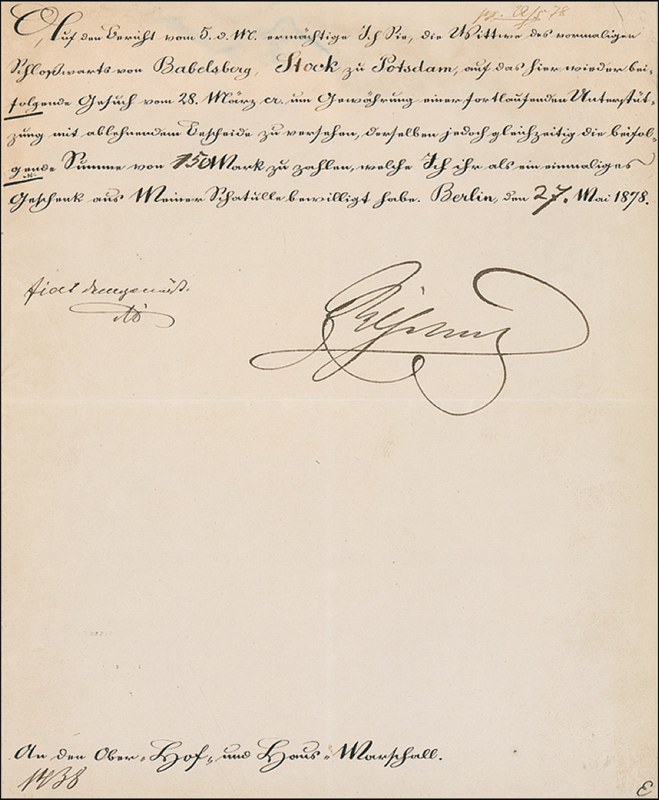 Auf den Bericht vom 5. d. M. ermächtige Ich Sie, die Wittwe des vormaligen
Schloßwarts von Babelsberg, Stock zu Potsdam, auf das hier wieder bei-
folgende Gesuch vom 28. März cr. um Gewährung einer fortlaufenden Unterstüt-
zung mit ablehnendem Bescheide zu versehen, derselben jedoch gleichzeitig die beifol-
gende Summe von 150 Mark zu zahlen, welche Ich ihr als ein einmaliges
Geschenk aus Meiner Schatulle bewilligt habe. Berlin, den 27. Mai 1878.
fiat demgemäß.
Wilhelm
An den Ober-Hof- und Haus-Marschall.